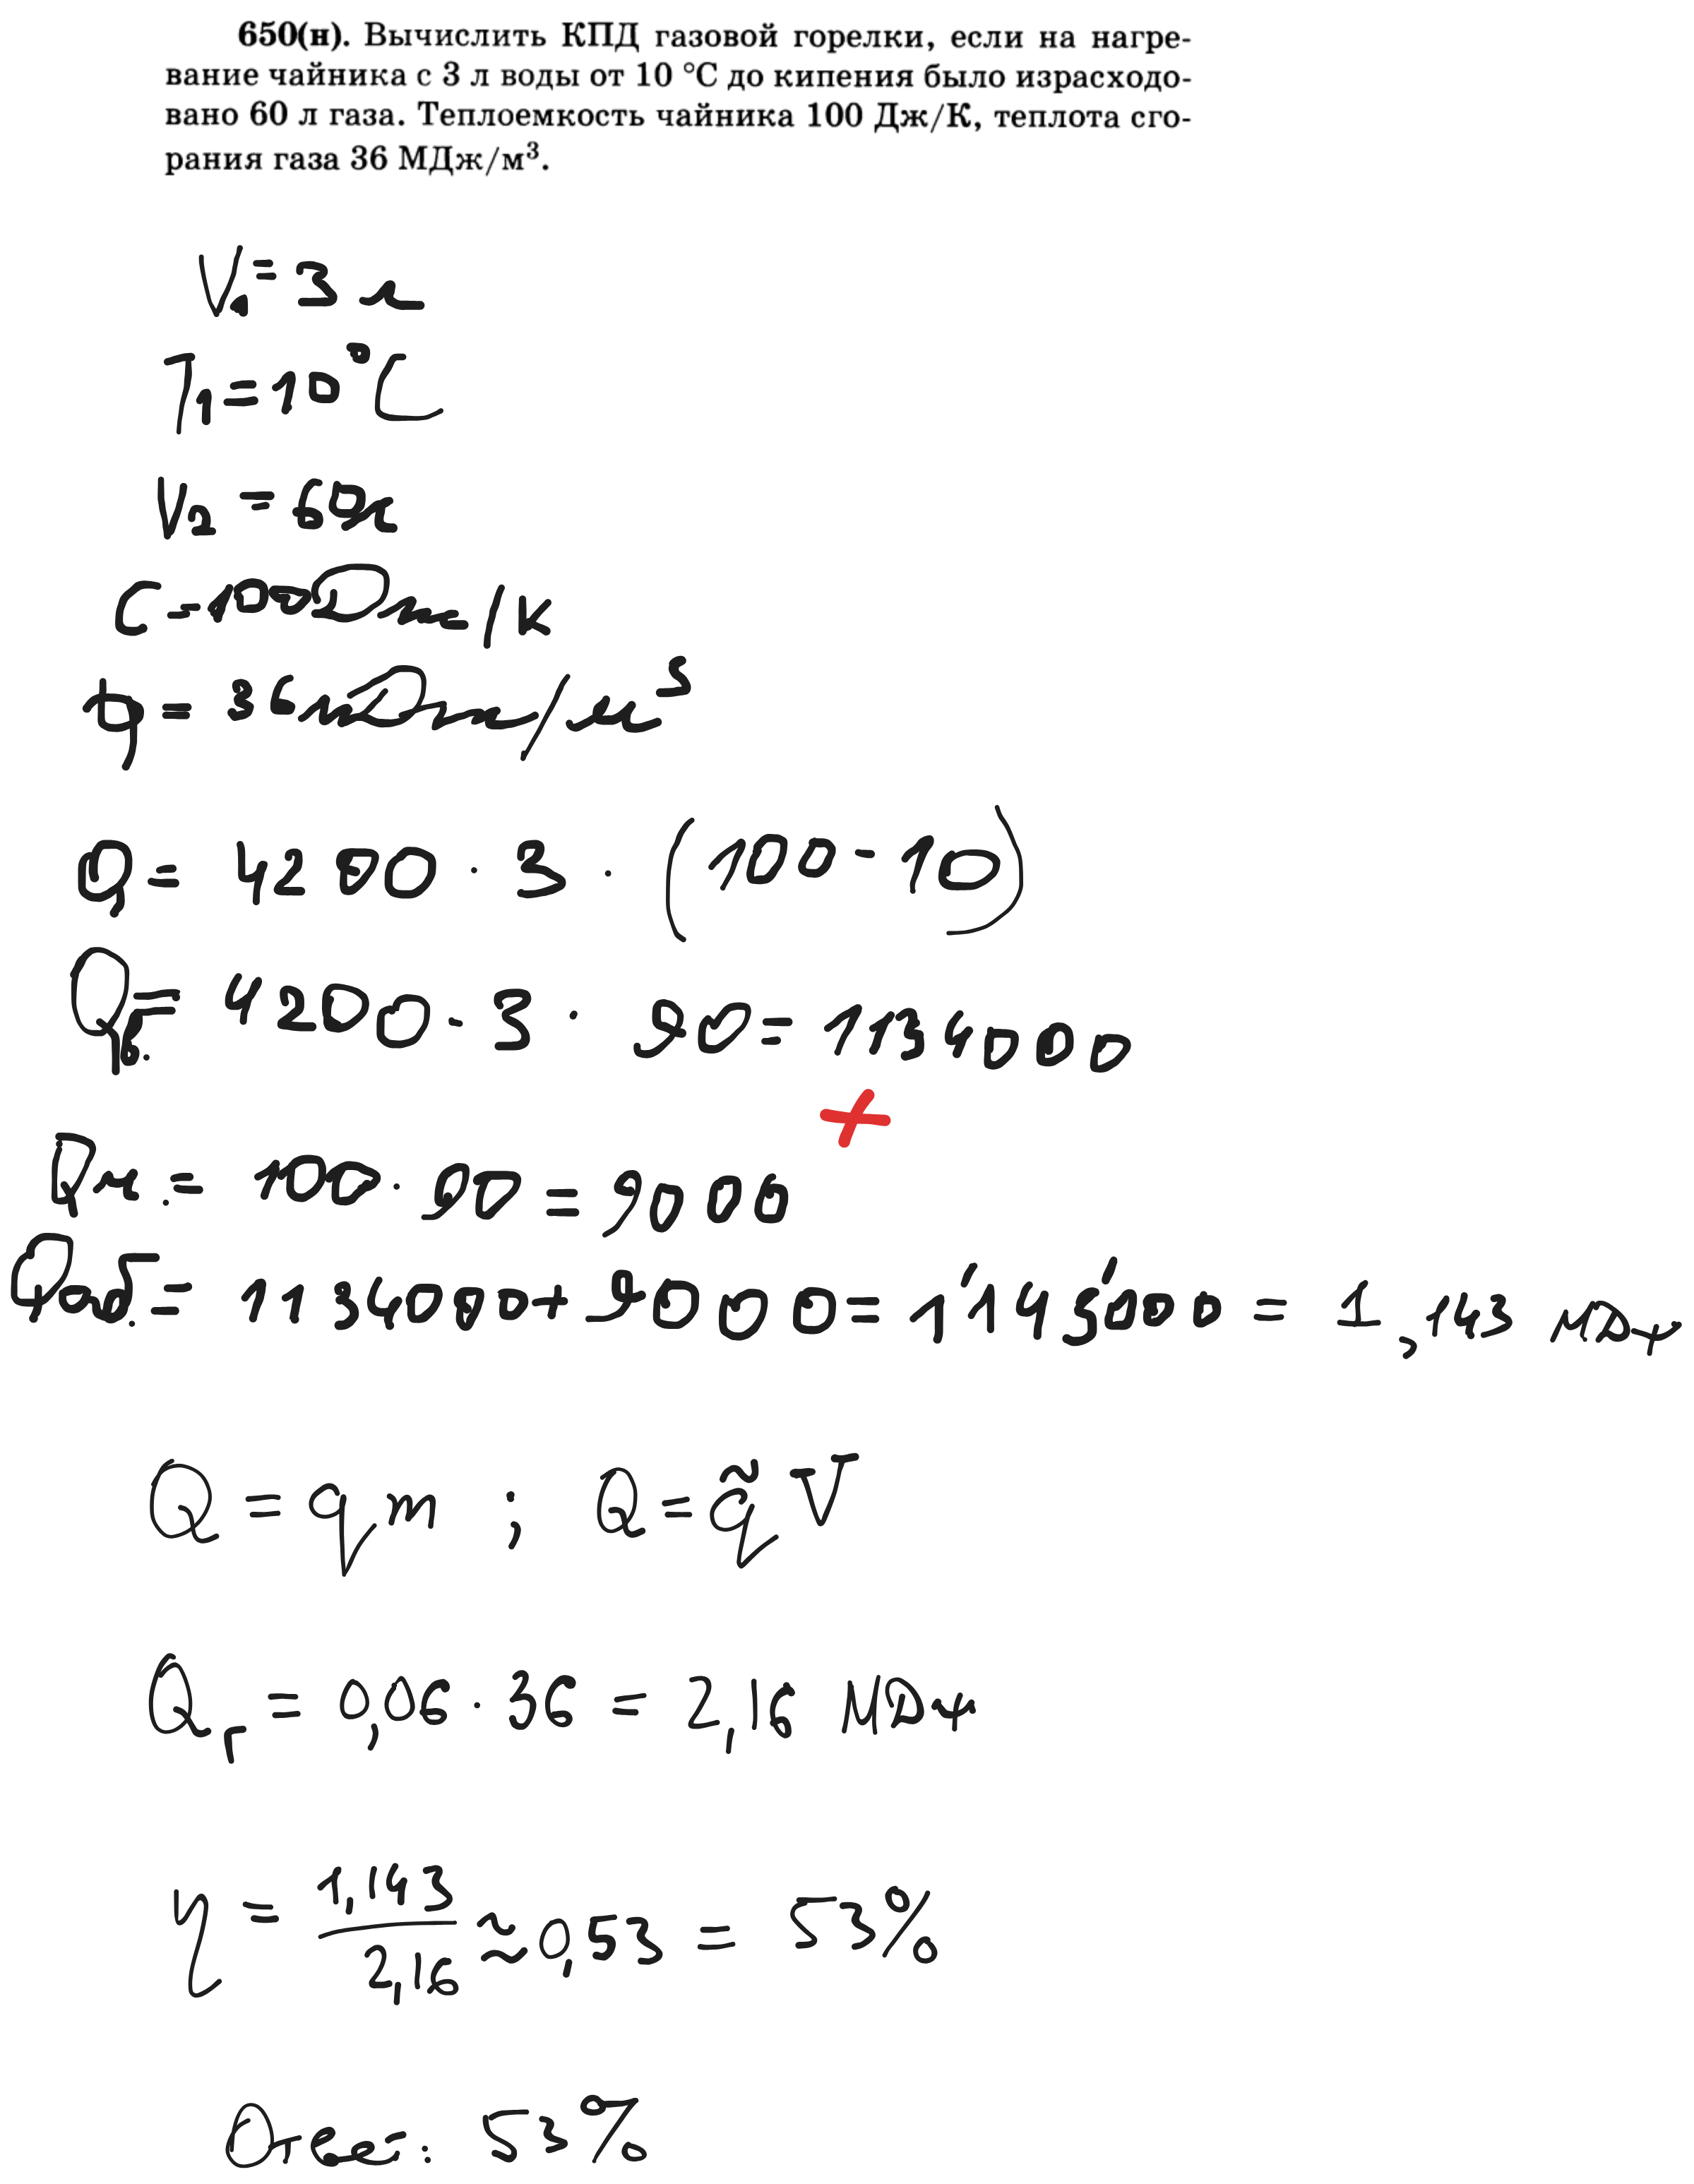 650(н). Вычислить КПД газовой горелки, если на нагре-
вание чайника с 3 л воды от 10 °С до кипения было израсходо-
вано 60 л газа. Теплоемкость чайника 100 Дж/К, теплота сго-
рания газа 36 МДж/м³.
V₁ = 3 л
T₁ = 10°C
V₂ = 60 л
C = 100 Дж/К
q = 36 мДж/м³
Q = 4200 · 3 · (100 - 10)
Qв. = 4200 · 3 · 90 = 1134000
+
Qч. = 100 · 90 = 9000
Qоб. = 1134000 + 9000 = 1'143'000 = 1,143 МДж
Q = qm ; Q = q̃V
Qг = 0,06 · 36 = 2,16 МДж
η = 1,143 / 2,16 ≈ 0,53 = 53%
Ответ: 53%